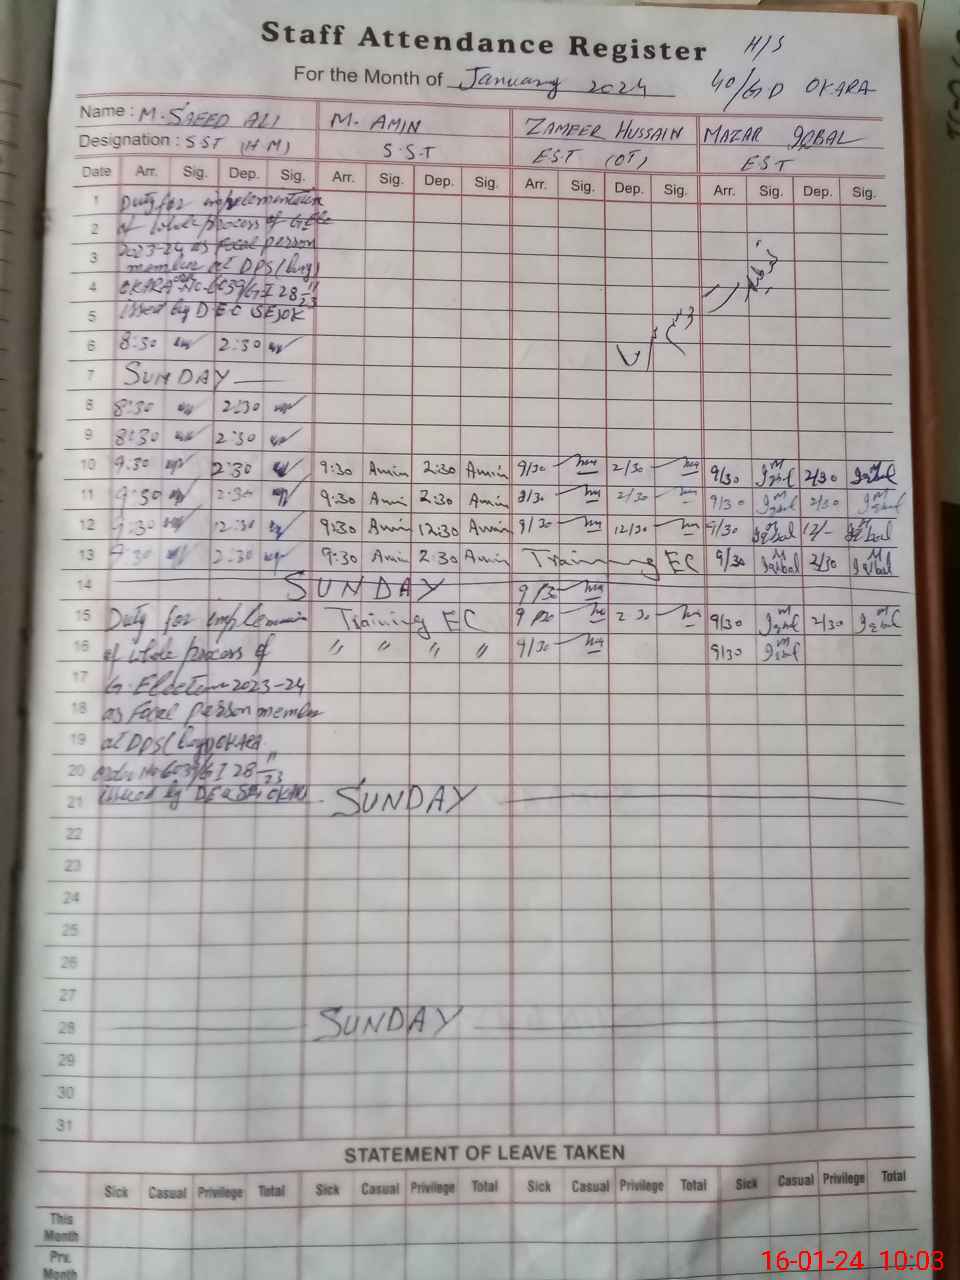 Staff Attendance Register
H/S
For the Month of January 2024
40/GD OKARA
Name : M. SAEED ALI M. AMIN ZAMEER HUSSAIN MAZAR IQBAL
Designation : S ST (H M) S.S.T E.S.T (OT) E.S.T
Date Arr. Sig. Dep. Sig. Arr. Sig. Dep. Sig. Arr. Sig. Dep. Sig. Arr. Sig. Dep. Sig.
1 Duty for implementation
2 of whole process of
3 2023-24 as Focal person
member at DPS (boys)
4 OKARA No. 6039/GI 28-11/23
5 issued by DEC
6 8:30 2:30
7 SUNDAY
8 8:30 2:30
9 8:30 2:30
10 9.30 2:30 9:30 Amin 2:30 Amin 9/30 2/30 9/30 M Iqbal 2/30 M Iqbal
11 9:30 2:30 9:30 Amin 2:30 Amin 9/30 2/30 9/30 M Iqbal 2/30 M Iqbal
12 9:30 12:30 9:30 Amin 12:30 Amin 9/30 12/30 9/30 M Iqbal 12/- M Iqbal
13 9:30 2:30 9:30 Amin 2:30 Amin Training EC 9/30 M Iqbal 2/30 M Iqbal
14 SUNDAY 9/30
15 Duty for implemen Training EC 9 2 30 9/30 M Iqbal 2/30 M Iqbal
16 of whole process of 〃 〃 〃 〃 9/30 9/30 M Iqbal
17 G. Election 2023-24
18 as Focal person member
19 at DPS (boys) OKARA
20 order No 6039/GI 28-11/23
21 issued by SUNDAY
22
23
24
25
26
27
28 SUNDAY
29
30
31
STATEMENT OF LEAVE TAKEN
Sick Casual Privilege Total Sick Casual Privilege Total Sick Casual Privilege Total Sick Casual Privilege Total
This
Month
Prv.
Month
16-01-24 10:03